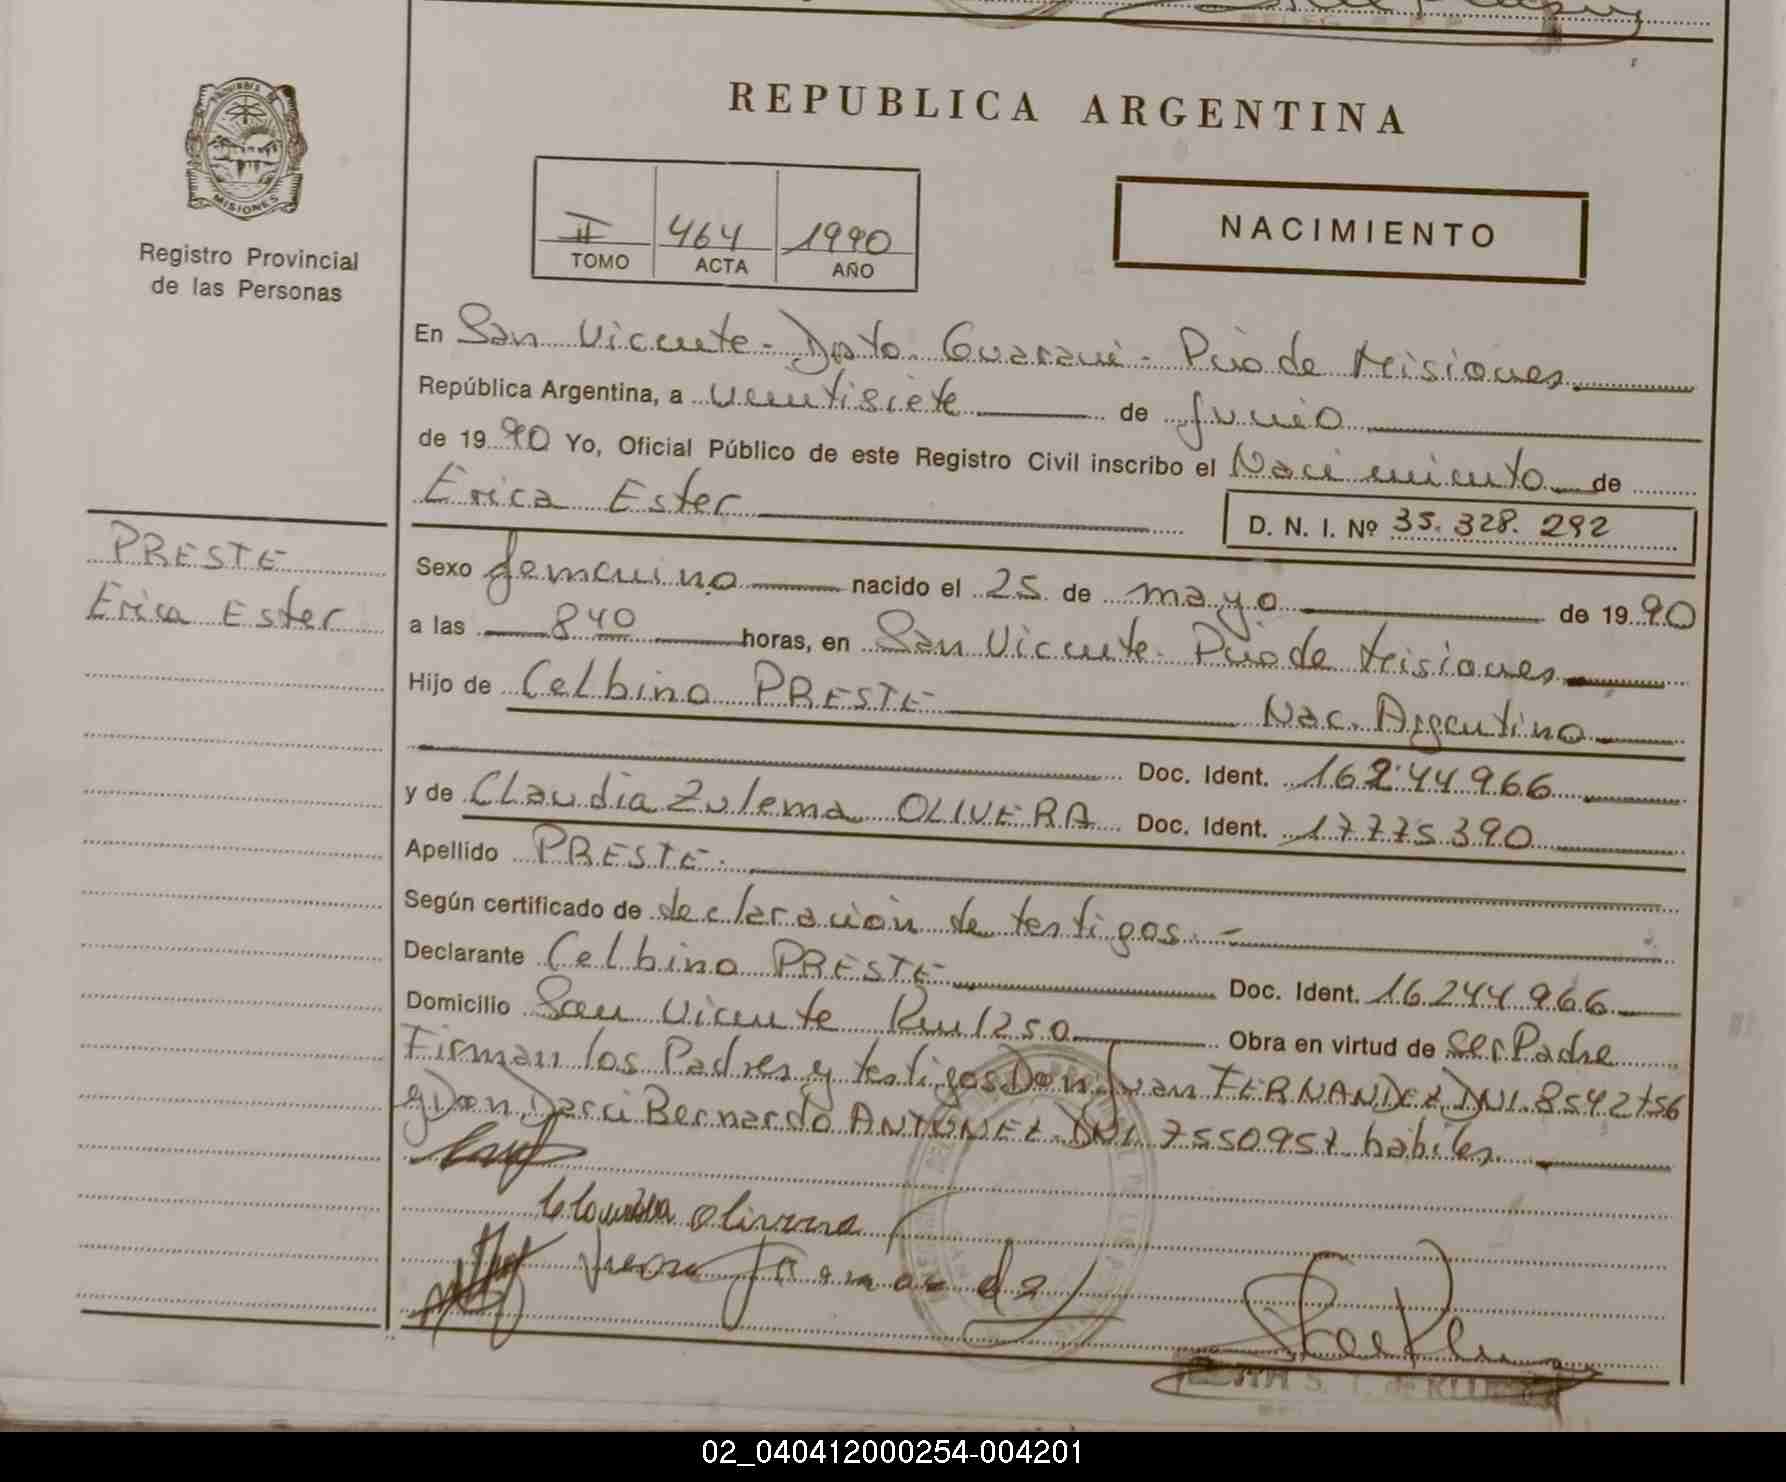 REPUBLICA ARGENTINA
PROVINCIA DE
MISIONES
Registro Provincial
de las Personas
II 464 1990
TOMO ACTA AÑO
NACIMIENTO
En San Vicente - Dpto. Guaraní - Pcia de Misiones
República Argentina, a veintisiete de junio
de 1990 Yo, Oficial Público de este Registro Civil inscribo el Nacimiento de
Erica Ester
D. N. I. Nº 35.328.292
PRESTE
Erica Ester
Sexo femenino nacido el 25 de mayo de 1990
a las 8 40 horas, en San Vicente. Pcia de Misiones
Hijo de Celbino PRESTE Nac. Argentino
Doc. Ident. 16244966
y de Claudia Zulema OLIVERA Doc. Ident. 17775390
Apellido PRESTE.
Según certificado de declaración de testigos.-
Declarante Celbino PRESTE Doc. Ident. 16244966
Domicilio San Vicente Km 1250 Obra en virtud de Ser Padre
Firman los Padres y testigos Don Juan FERNANDEZ DNI. 8542756
y Don Darci Bernardo ANTUNEZ DNI 7550957 hábiles
Claudia Olivera
Juan Fernandez
02_040412000254-004201